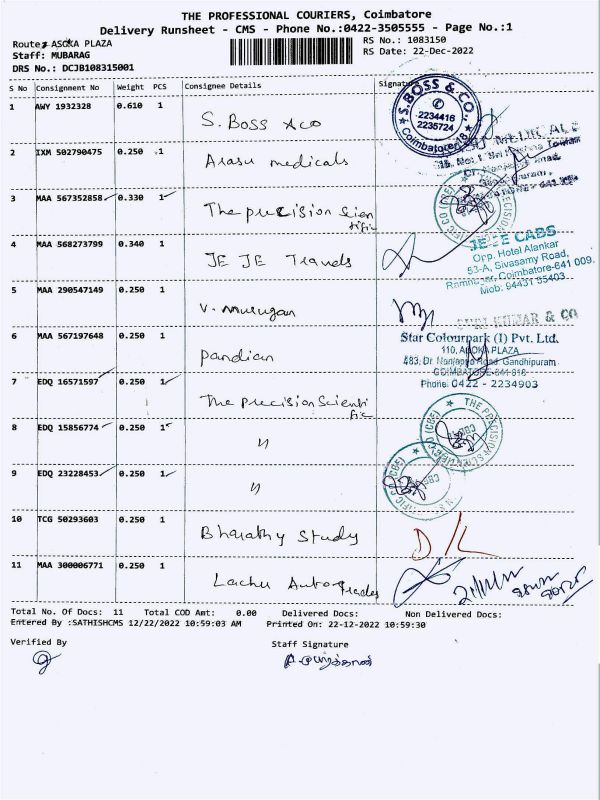 THE PROFESSIONAL COURIERS, Coimbatore
Delivery Runsheet - CMS - Phone No.:0422-3505555 - Page No.:1
Route: ASOKA PLAZA
RS No.: 1083150
Staff: MUBARAG
RS Date: 22-Dec-2022
DRS No.: DCJB108315001
S No Consignment No Weight PCS Consignee Details Signature
1 AWY 1932328 0.610 1 S. Boss & co
S. BOSS & CO.
2234416
2235724
Coimbatore-18
2 IXM 502790475 0.250 1 Arasu medicals
3 MAA 567352858 0.330 1 The precision Scien
tific
4 MAA 568273799 0.340 1 JE JE Travels
JE JE CABS
Opp. Hotel Alankar
53-A, Sivasamy Road,
Ramnagar, Coimbatore-641 009.
Mob: 94431 55403
5 MAA 290547149 0.250 1 V. Murugan
KUMAR & CO
6 MAA 567197648 0.250 1 Pandian
Star Colourpark (I) Pvt. Ltd.
110, ASOKA PLAZA
483, Dr. Nanjappa Road, Gandhipuram
Phone: 0422 - 2234903
7 EDQ 16571597 0.250 1 The precision Scienti
fic
8 EDQ 15856774 0.250 1 "
9 EDQ 23228453 0.250 1 "
10 TCG 50293603 0.250 1 Bharathy Study
11 MAA 300006771 0.250 1 Lachu Auto Trades
Total No. Of Docs: 11 Total COD Amt: 0.00 Delivered Docs: Non Delivered Docs:
Entered By :SATHISHCMS 12/22/2022 10:59:03 AM Printed On: 22-12-2022 10:59:30
Verified By Staff Signature